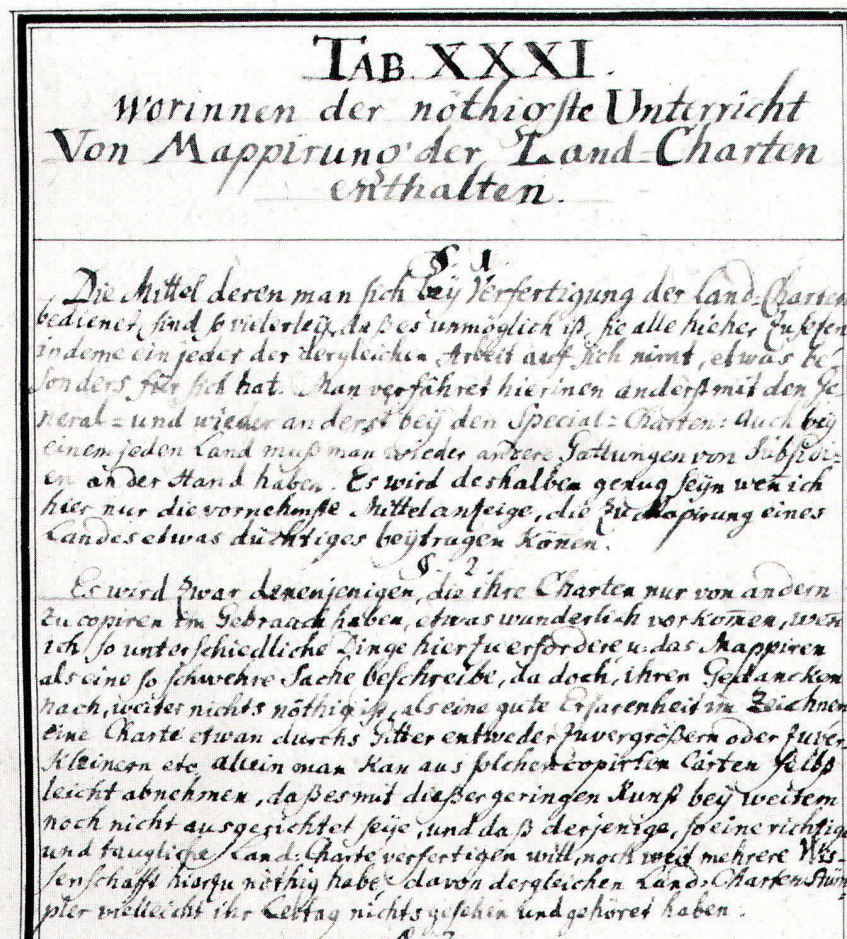 TAB. XXXI.
Worinnen der nöthigste Unterricht
Von Mappirung der Land-Charten
enthalten.
§. 1.
Die Mittel deren man sich bey Verfertigung der Land-Charten
bedienet, sind so vielerley, daß es unmöglich ist, sie alle hieher zusetzen
indeme ein jeder der dergleichen Arbeit auf sich nimt, etwas be-
sonders für sich hat. Man verfähret hierinen anderst mit den Ge-
neral- und wieder anderst bey den Special-Charten: Auch bey
einem jeden Land muß man wieder andere Gattungen von Subsidi-
en an der Hand haben. Es wird deshalben genug seyn wen̅ ich
hier nur die vornehmste Mittel anzeige, die zu Mapirung eines
Landes etwas düchtiges beytragen kön̅en.
§. 2.
Es wird zwar denenjenigen, die ihre Charten nur von andern
zu copiren im Gebrauch haben, etwas wunderlich vorkom̅en, wen̅
ich so unterschiedliche Dinge hierzu erfordere u. das Mappiren
als eine so schwehre Sache beschreibe, da doch, ihren Gedancken
nach, weiter nichts nöthig ist, als eine gute Erfarenheit im Zeichnen
eine Charte etwan durchs Gitter entweder zuvergrößern oder zuver-
kleinern etc. allein man kan aus solchen copirten Carten selbs
leicht abnehmen, daß es mit dießer geringen Kunst bey weitem
noch nicht ausgerichtet seye, und daß derjenige, so eine richtige
und taugliche Land-Charte verfertigen will, noch weit mehrere Wis-
senschafft hierzu nöthig habe, davon dergleichen Land-Charten Stüm-
pler vielleicht ihr Lebtag nichts gesehen und gehöret haben.
§. 3.